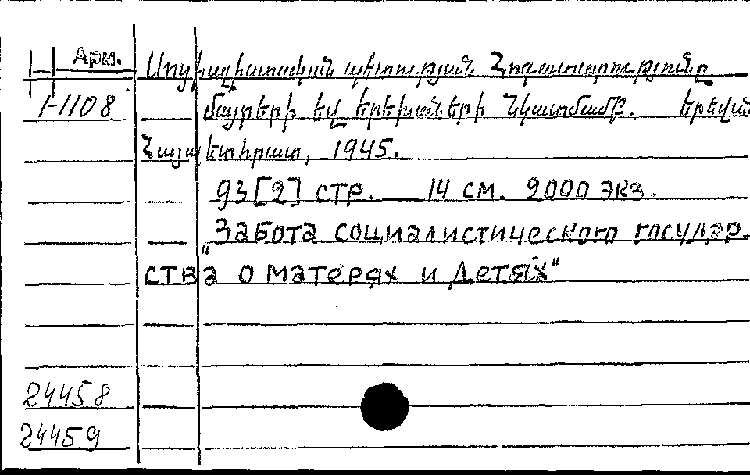 Арм. Սոցիալիստական պետության հոգատարությունը
1-1108 մայրերի եվ երեխաների նկատմամբ. Երեվան
Հայպետհրատ, 1945.
93 [2] стр. 14 см. 2000 экз.
"Забота социалистического государ.
ства о матерях и детях"
24458
24459